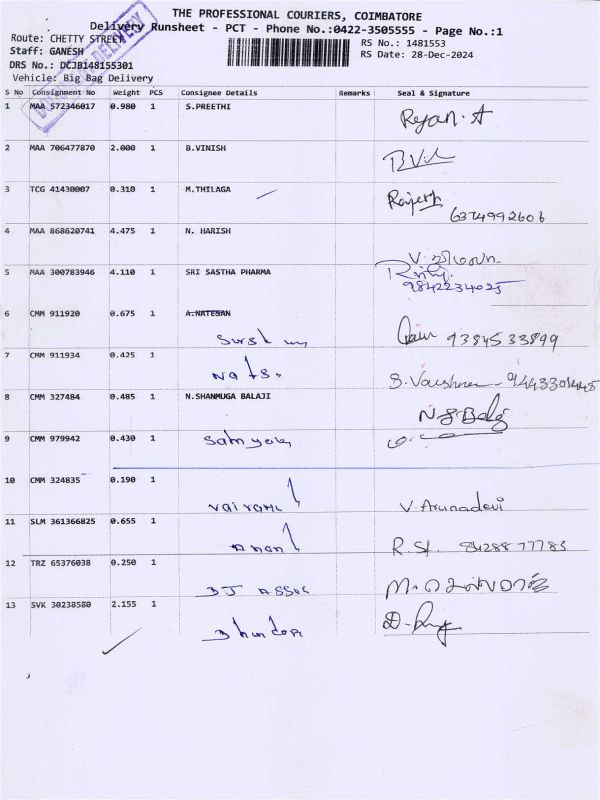 THE PROFESSIONAL COURIERS, COIMBATORE
Delivery Runsheet - PCT - Phone No.:0422-3505555 - Page No.:1
Route: CHETTY STREET
RS No.: 1481553
Staff: GANESH
RS Date: 28-Dec-2024
DRS No.: DCJB148155301
Vehicle: Big Bag Delivery
DELIVERY
S No Consignment No Weight PCS Consignee Details Remarks Seal & Signature
1 MAA 572346017 0.980 1 S.PREETHI Rejan. A
2 MAA 706477870 2.000 1 B.VINISH
3 TCG 41430007 0.310 1 M.THILAGA Rajesh 6374992606
4 MAA 868620741 4.475 1 N. HARISH
5 MAA 300783946 4.110 1 SRI SASTHA PHARMA 9842234025
6 CMM 911920 0.675 1 A.NATESAN 9384533899
7 CMM 911934 0.425 1
8 CMM 327484 0.485 1 N.SHANMUGA BALAJI N.S.Balaj
9 CMM 979942 0.430 1
10 CMM 324835 0.190 1 V. Arunadevi
11 SLM 361366825 0.655 1 Anan 8428877783
12 TRZ 65376038 0.250 1 3J Assoc
13 SVK 30238580 2.155 1